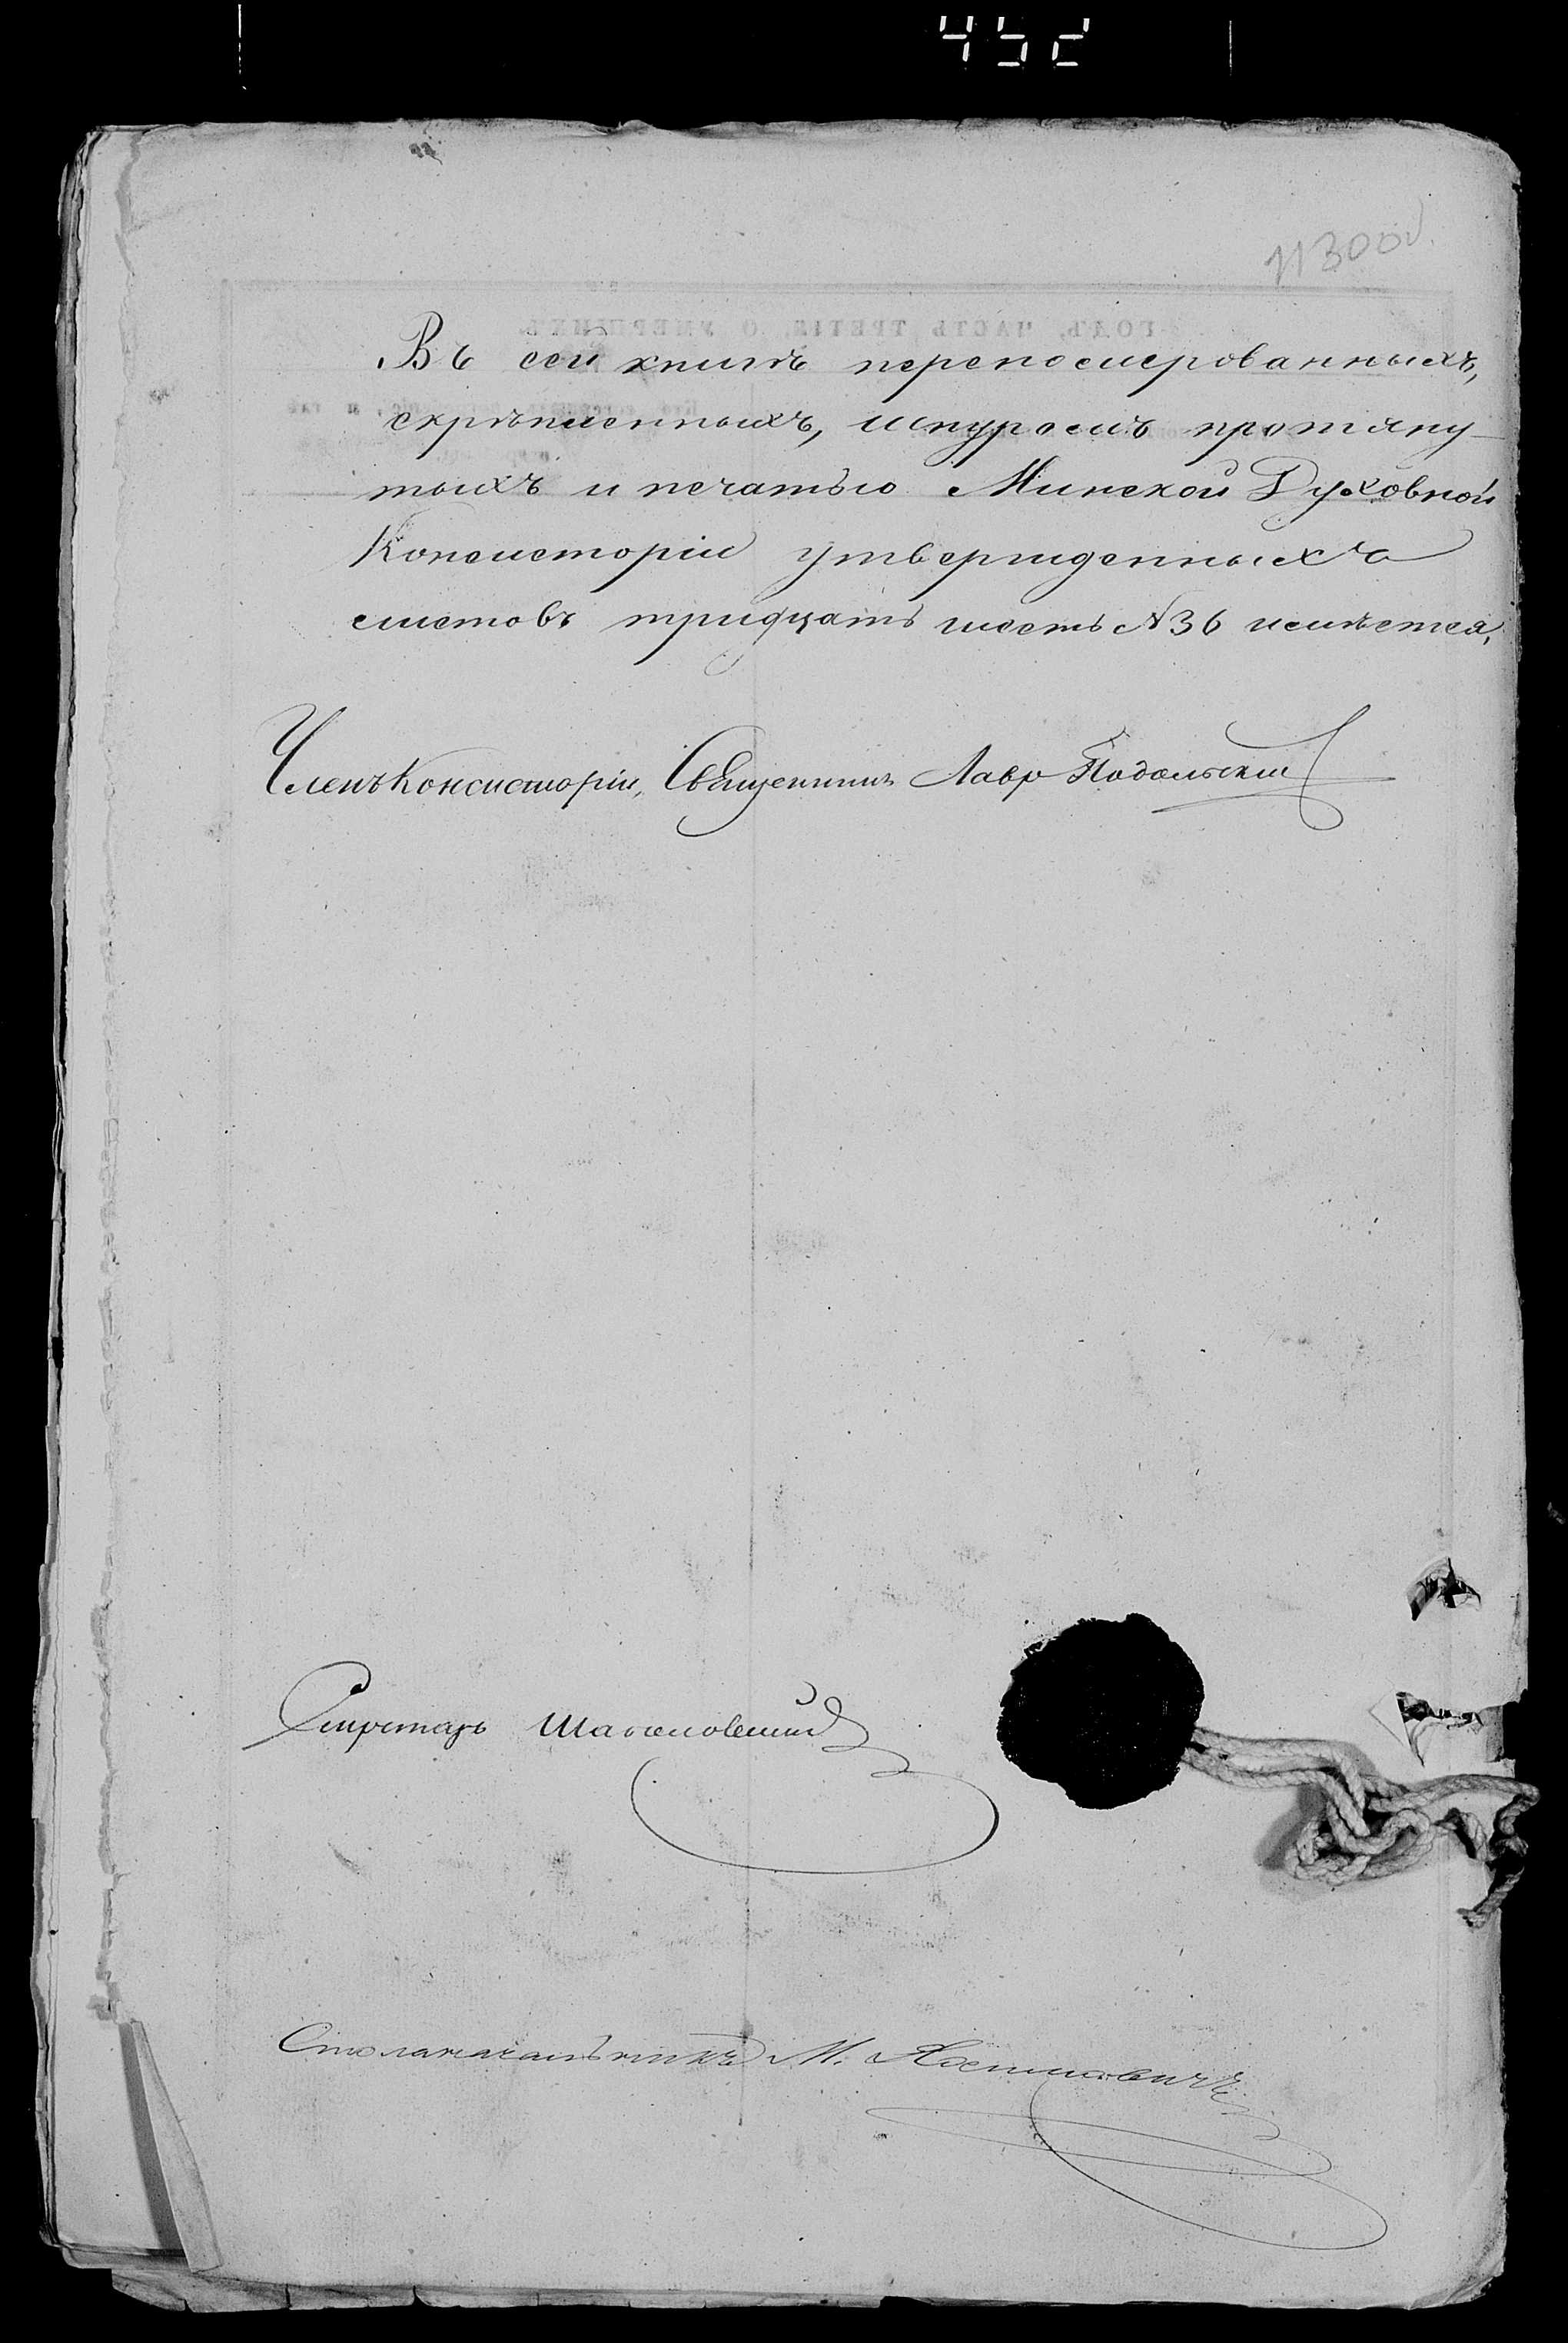 452
11300
Въ сей книгѣ перепомерованныхъ,
скрѣпленныхъ, шнуромъ протяну-
тыхъ и печатью Минской Духовной
Консисторіи утвержденныхъ
листовъ тридцать шесть №36 имѣется,
Членъ Консисторіи, Священникъ Лавр Подольскій
Секретарь
Столоначальникъ М.